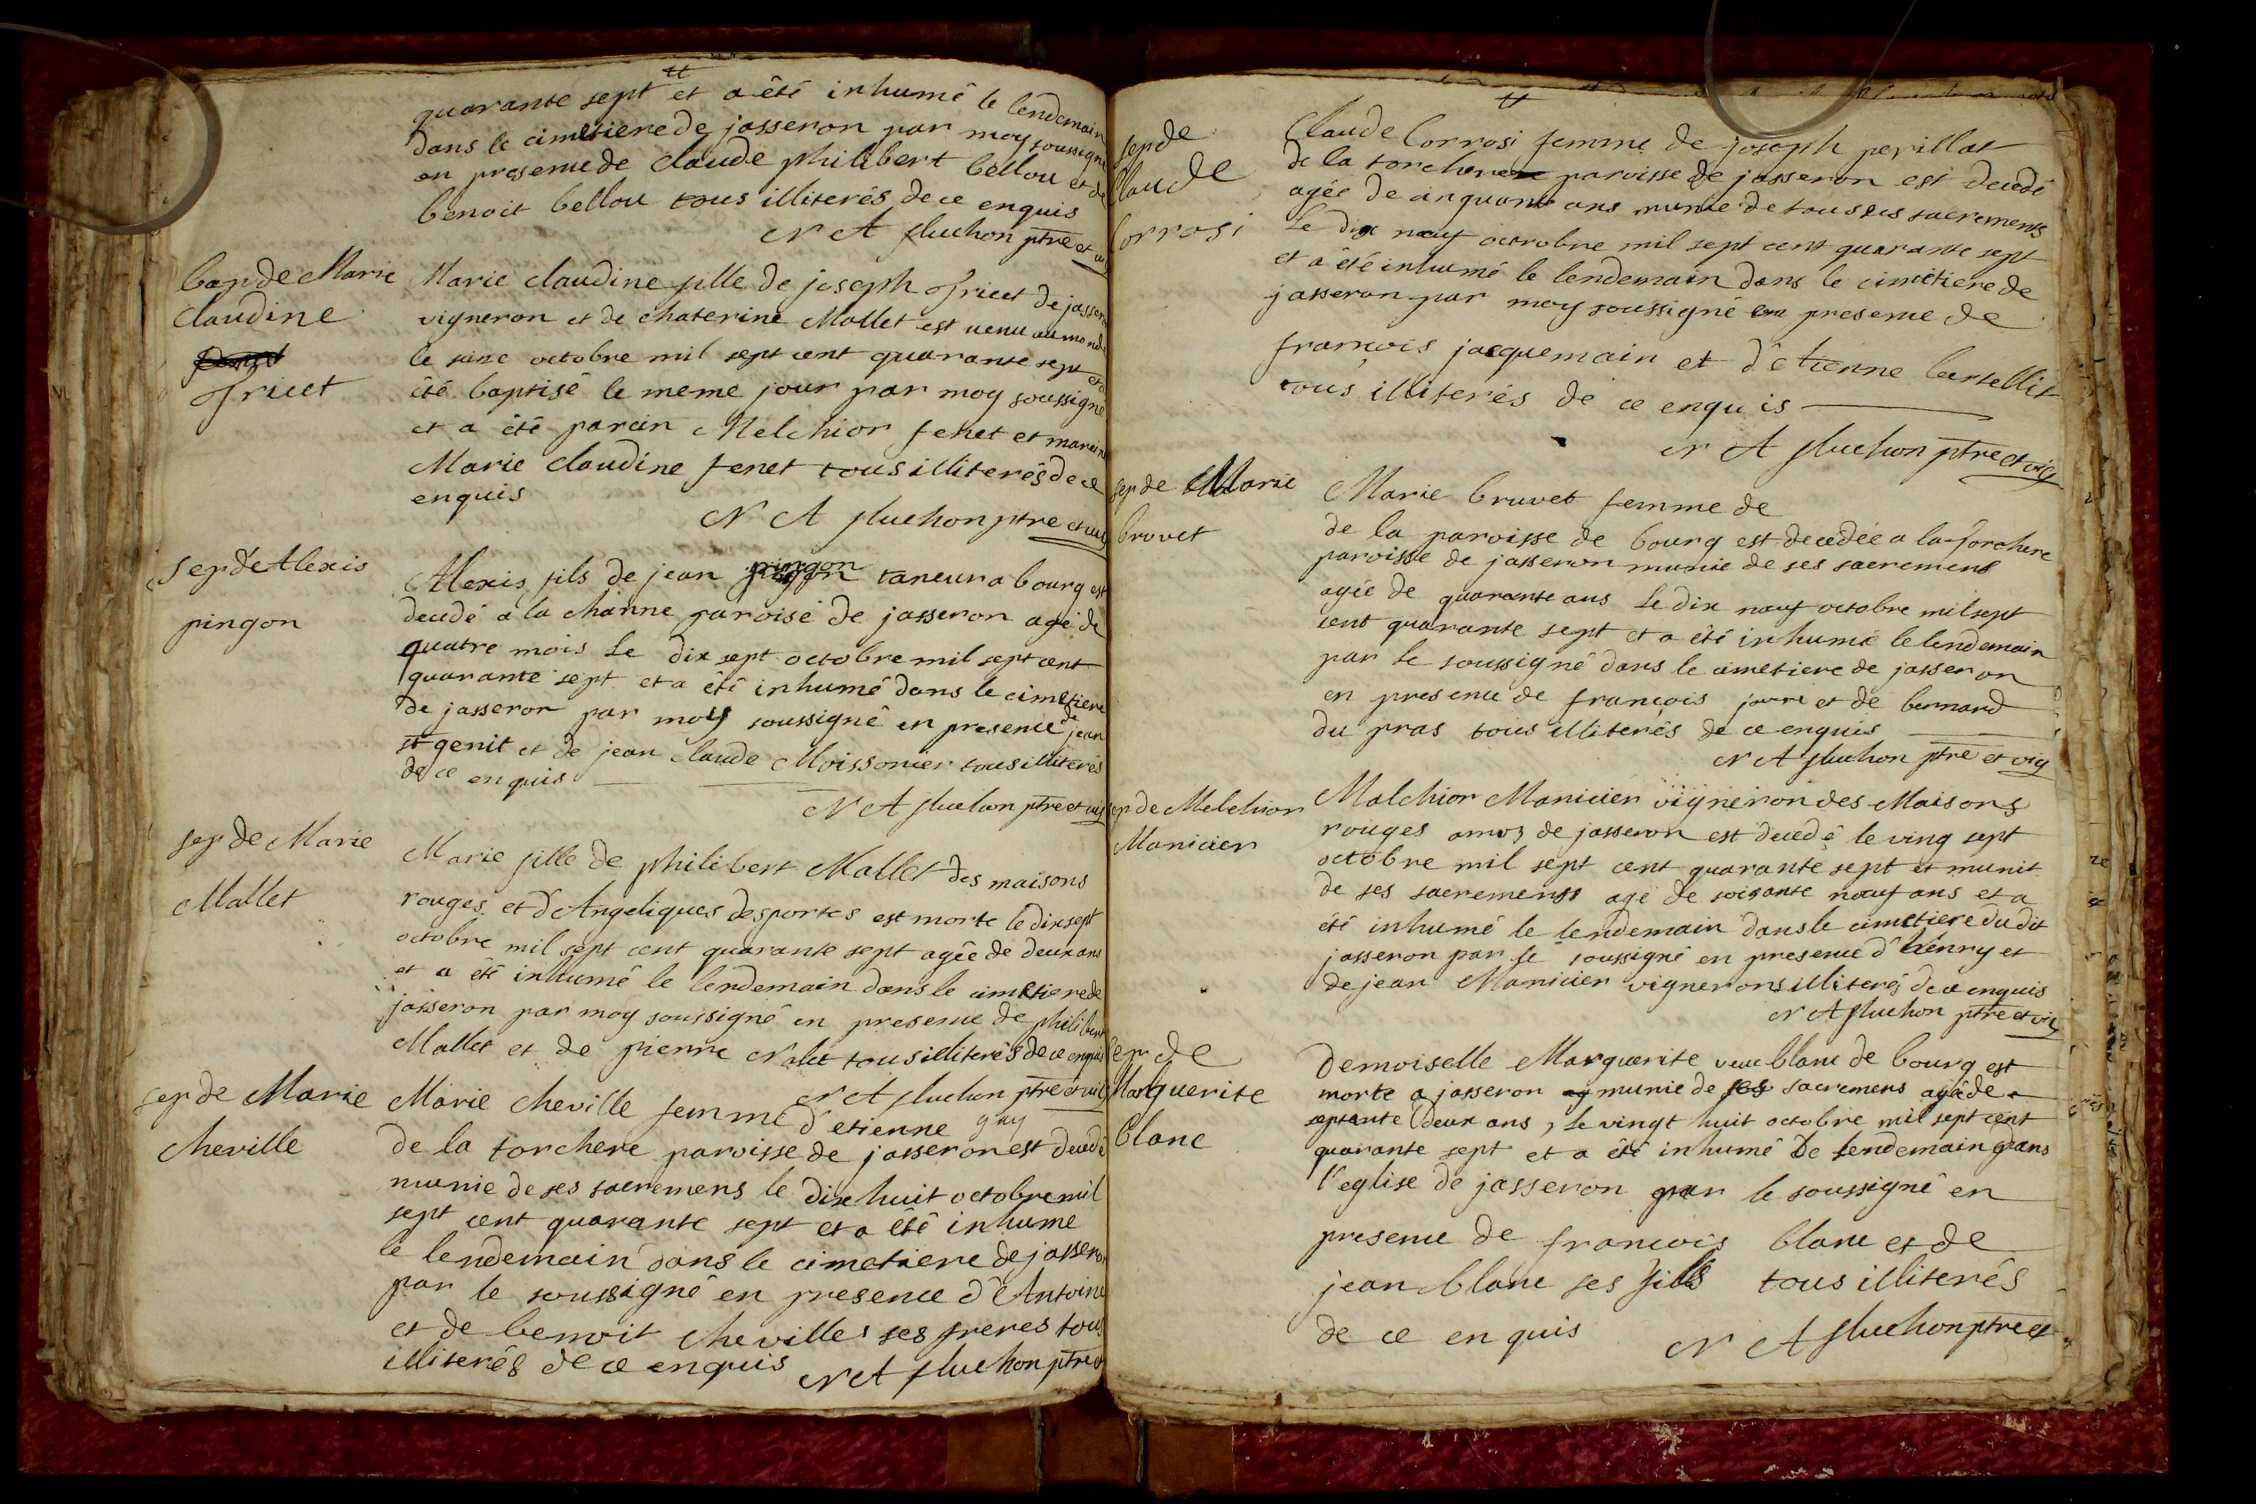 quarante sept et a êté inhumé le lendemain
dans le cimetiere de jasseron par moy soussigné
en presence de claude philibert bellou et de
benoit bellou tous illiterés de ce enquis
N A fluchon ptre et vic
bap de Marie
claudine
fricet
Marie claudine fille de joseph fricet de jasseron
vigneron et de chaterine Mallet est venu au monde
le seize octobre mil sept cent quarante sept et a
êté baptisé le meme jour par moy soussigné
et a êté parein Melchior fenet et mareine
Marie claudine fenet tous illiterés de ce
enquis
N A fluchon ptre et vic
sep d'Alexis
pingon
Alexis fils de jean pingon taneur a bourg est
decedé a la channe paroise de jasseron agé de
quatre mois le dix sept octobre mil sept cent
quarante sept et a êté inhumé dans le cimetiere
de jasseron par moy soussigné en presence de jean
st genit et de jean claude Moissonier tous illiterés
de ce enquis
N A fluchon ptre et vic
sep de Marie
Mallet
Marie fille de philibert Mallet des maisons
rouges et d'Angeliques desportes est morte le dix sept
octobre mil sept cent quarante sept agée de deux ans
et a êté inhumé le lendemain dans le cimetiere de
jasseron par moy soussigné en presence de philibert
Mallet et de pierre Nalet tous illiterés de ce enquis
N A fluchon ptre et vic
sep de Marie
cheville
Marie cheville femme d'etienne guy
de la torchere paroisse de jasseron est decedé
munie de ses sacremens le dix huit octobre mil
sept cent quarante sept et a êté inhumé
le lendemain dans le cimetiere de jasseron
par le soussigné en presence d'Antoine
et de benoit chevilles ses freres tous
illiterés de ce enquis
N A fluchon ptre et
sep de
claude
Corrosi
Claude Corrosi femme de joseph perillat
de la torchere paroisse de jasseron est decedé
agée de cinquante ans munie de tous ses sacremens
le dix neuf octobre mil sept cent quarante sept
et a été inhumé le lendemain dans le cimetiere de
jasseron par moy soussigné en presence de
francois jacquemain et d'etienne bertellit
tous illiterés de ce enquis
N A fluchon ptre et vic
sep de Marie
bruvet
Marie bruvet femme de
de la paroisse de bourg est decedée a la torchere
paroisse de jasseron munie de ses sacremens
agée de quarante ans le dix neuf octobre mil sept
cent quarante sept et a êté inhumé le lendemain
par le soussigné dans le cimetiere de jasseron
en presence de francois et de bernard
du pras tous illiterés de ce enquis
N A fluchon ptre et vic
sep de Melchior
Manicier
Malchior Manicier vigneron des Maisons
rouges de jasseron est decedé le ving sept
octobre mil sept cent quarante sept et munit
de ses sacremens agé de soisante neuf ans et a
été inhumé le lendemain dans le cimetiere du dit
jasseron par le soussigné en presence d'henry et
de jean Manicier vignerons illiterés de ce enquis
N A fluchon ptre et vic
sep de
Marguerite
blanc
Demoiselle Marguerite veuve blanc de bourg est
morte a jasseron munie de ses sacremens agé de
septante deux ans, le vingt huit octobre mil sept cent
quarante sept et a été inhumé le lendemain dans
l'eglise de jasseron par le soussigné en
presence de francois blanc et de
jean blanc ses fils tous illiterés
de ce enquis
N A fluchon ptre et